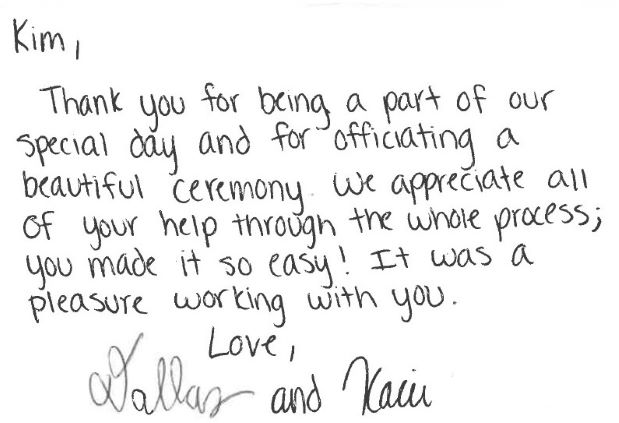 Kim,
Thank you for being a part of our
special day and for officiating a
beautiful ceremony. We appreciate all
of your help through the whole process;
you made it so easy! It was a
pleasure working with you.
Love,
Dallas and Kacii